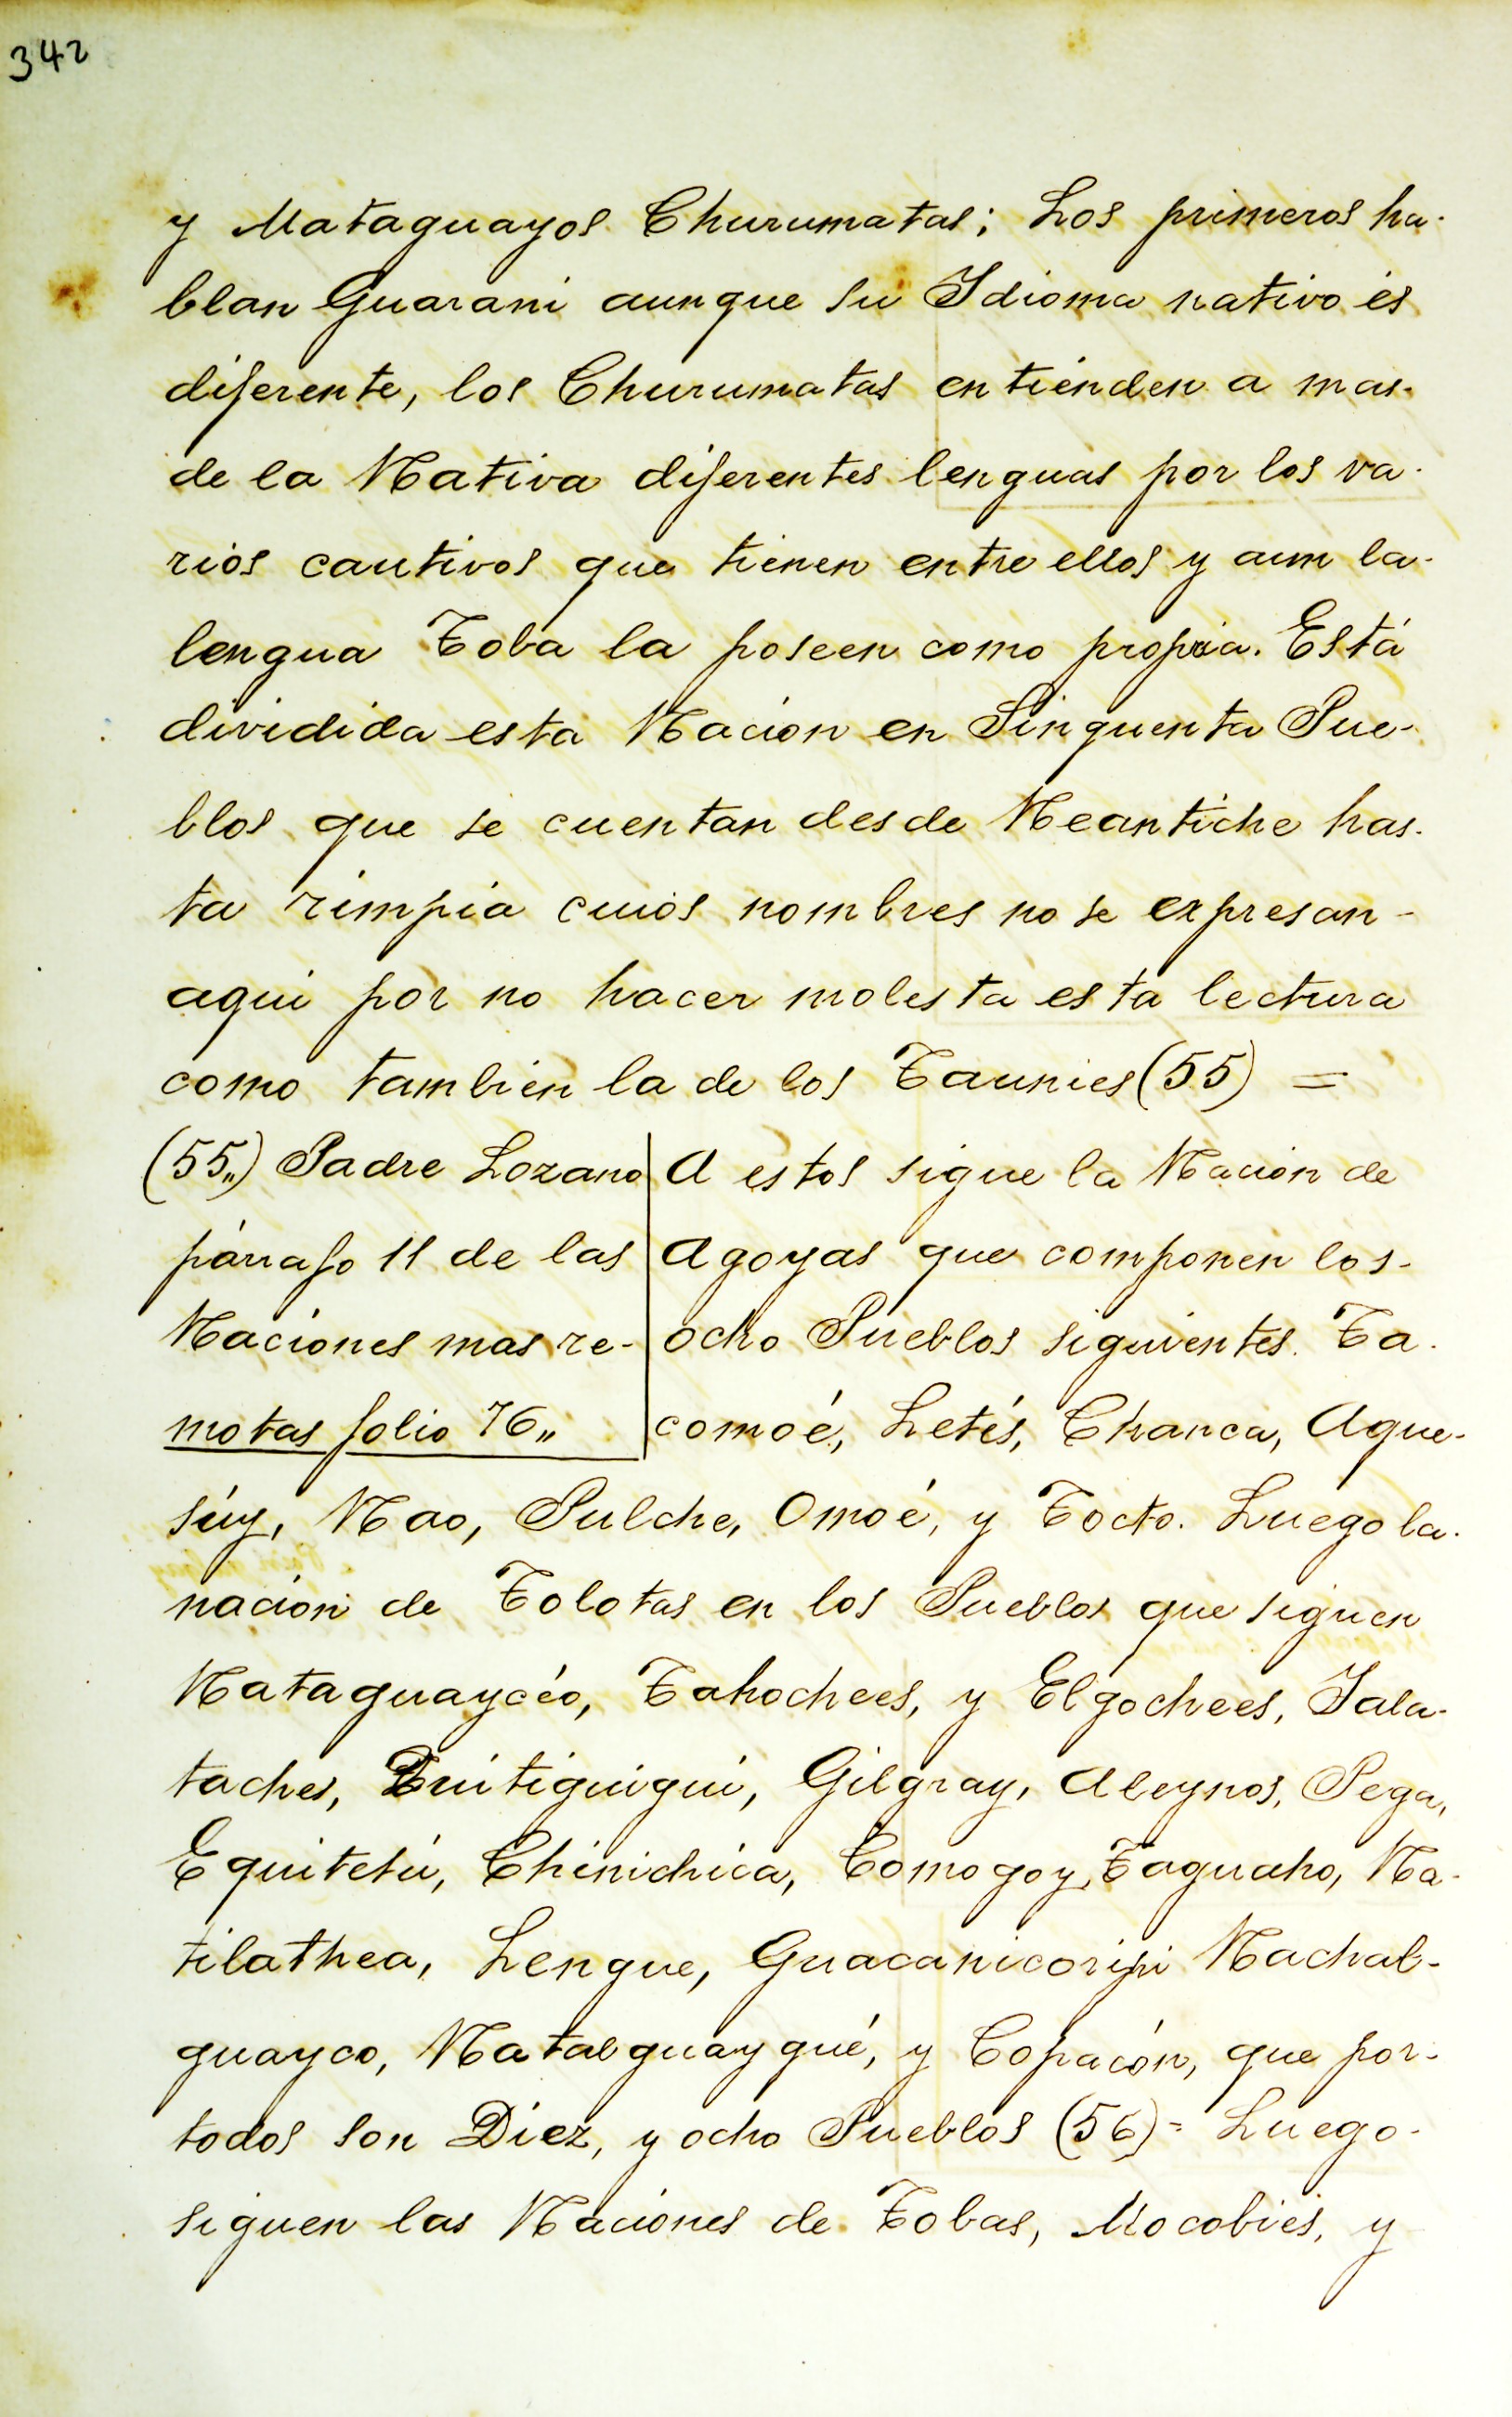 342
y Mataguayos Churumatas; Los primeros ha-
blan Guarani aunque su Idioma nativo és
diferente, los Churumatas entienden a mas-
de la Nativa diferentes lenguas por los va-
rios cautivos que tienen entre ellos y aun la-
lengua Toba la poseen como propia. Está
dividida esta Nacion en Sinquenta Pue-
blos que se cuentan desde Neantiche has-
ta rimpia cuios nombres no se expresan-
aqui por no hacer molesta esta lectura
como tambien la de los Taunies (55) =
(55„) Padre Lozano
párrafo 11 de las
Naciones mas re-
motas folio 76„
A estos sigue la Nacion de
Agoyas que componen los-
ocho Pueblos siguientes. Ta-
comoé, Letés, Chanca, Ague-
súy, Nao, Pulche, Omoé, y Tocto. Luego la-
nacion de Tolotas en los Pueblos que siguen
Nataguaycéo, Tahochees, y Elgochees, Jala-
taches, Truitiguigui, Gilgray, Aleynos, Pega,
Equitetú, Chinichica, Comogoy, Taguaho, Na-
tilathea, Lengue, Guacanicoripi Nachal-
guayco, Natalguaygué, y Copacón, que por-
todos son Diez, y ocho Pueblos (56) = Luego-
siguen las Naciones de Tobas, Mocobies, y